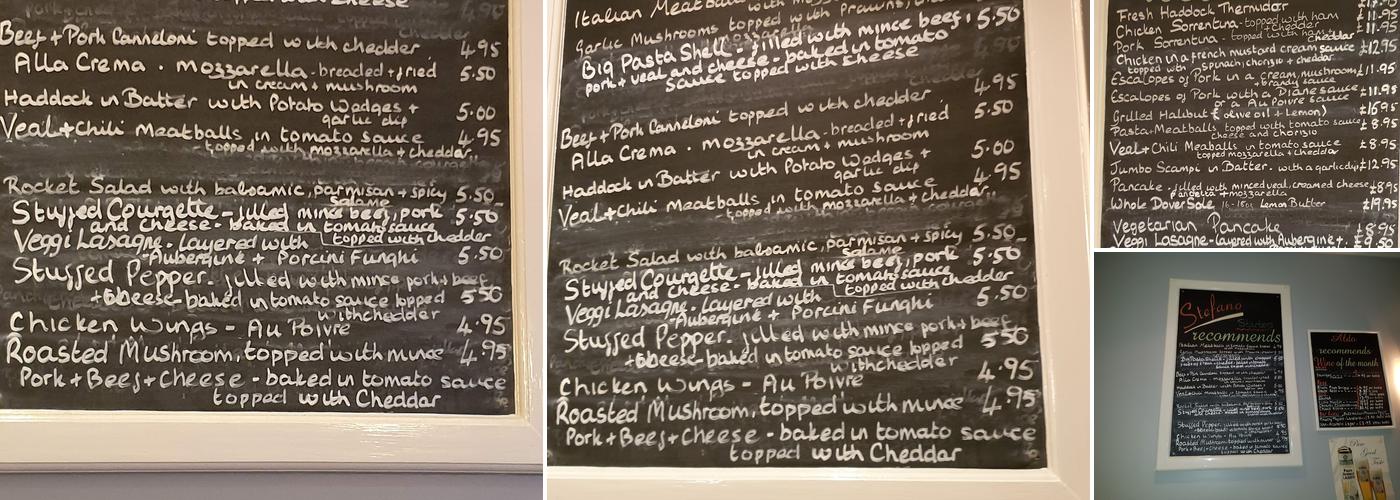 cheese
Beef + Pork Canneloni topped with chedder 4.95
Alla Crema . mozzarella - breaded + fried 5.50
in cream + mushroom
Haddock in Batter with Potato Wadges + 5.00
garlic dip
Veal + Chili Meatballs in tomato sauce 4.95
- topped with mozzarella + chedder
Rocket Salad with balsamic, parmisan + spicy 5.50
Salame
Stuffed Courgette - filled mince beef, pork 5.50
and cheese - baked in tomato sauce
topped with chedder
Veggi Lasagne - layered with
Aubergine + Porcini Funghi 5.50
Stuffed Pepper - filled with mince pork + beef
+ cheese - baked in tomato sauce topped 5.50
with chedder
Chicken Wings - Au Poivre 4.95
Roasted Mushroom, topped with mince 4.95
Pork + Beef + Cheese - baked in tomato sauce
topped with Cheddar
Italian Meatballs
Garlic Mushrooms topped with prawns,
mozzarella
Big Pasta Shell - filled with mince beef, 5.50
pork + veal and cheese - baked in tomato
sauce topped with cheese
Beef + Pork Canneloni topped with chedder 4.95
Alla Crema . mozzarella - breaded + fried 5.50
in cream + mushroom
Haddock in Batter with Potato Wadges + 5.00
garlic dip
Veal + Chili Meatballs in tomato sauce 4.95
- topped with mozzarella + chedder
Rocket Salad with balsamic, parmisan + spicy 5.50
Salame
Stuffed Courgette - filled mince beef, pork 5.50
and cheese - baked in tomato sauce
topped with chedder
Veggi Lasagne - layered with
Aubergine + Porcini Funghi 5.50
Stuffed Pepper - filled with mince pork + beef
+ cheese - baked in tomato sauce topped 5.50
with chedder
Chicken Wings - Au Poivre 4.95
Roasted Mushroom, topped with mince 4.95
Pork + Beef + Cheese - baked in tomato sauce
topped with Cheddar
Fresh Haddock Thermidor
Chicken Sorrentina - topped with ham £11.95
+ chedder
Pork Sorrentina - topped with ham £11.95
chedder
Chicken in a french mustard cream sauce £12.95
topped with spinach, chorizo + cheddar
Escalopes of Pork in a cream, mushroom £11.95
+ brandy sauce
Escalopes of Pork with a Diane sauce £11.95
or a Au Poivre sauce
Grilled Halibut (olive oil + Lemon) £16.95
Pasta + Meatballs topped with tomato sauce £8.95
Cheese and chorizo
Veal + Chili Meaballs in tomato sauce £8.95
topped mozzarella + chedder
Jumbo Scampi in Batter - with a garlic dip £12.95
Pancake - filled with minced veal, creamed cheese £8.95
pancetta + mozzarella
Whole Dover Sole 16-18oz Lemon Butter £19.95
Vegetarian Pancake £8.95
Veggi Lasagne - layered with Aubergine + £9.50
Stefano
Starters
recommends
Aldo
recommends
Wine of the month
Pure
Good
Taste